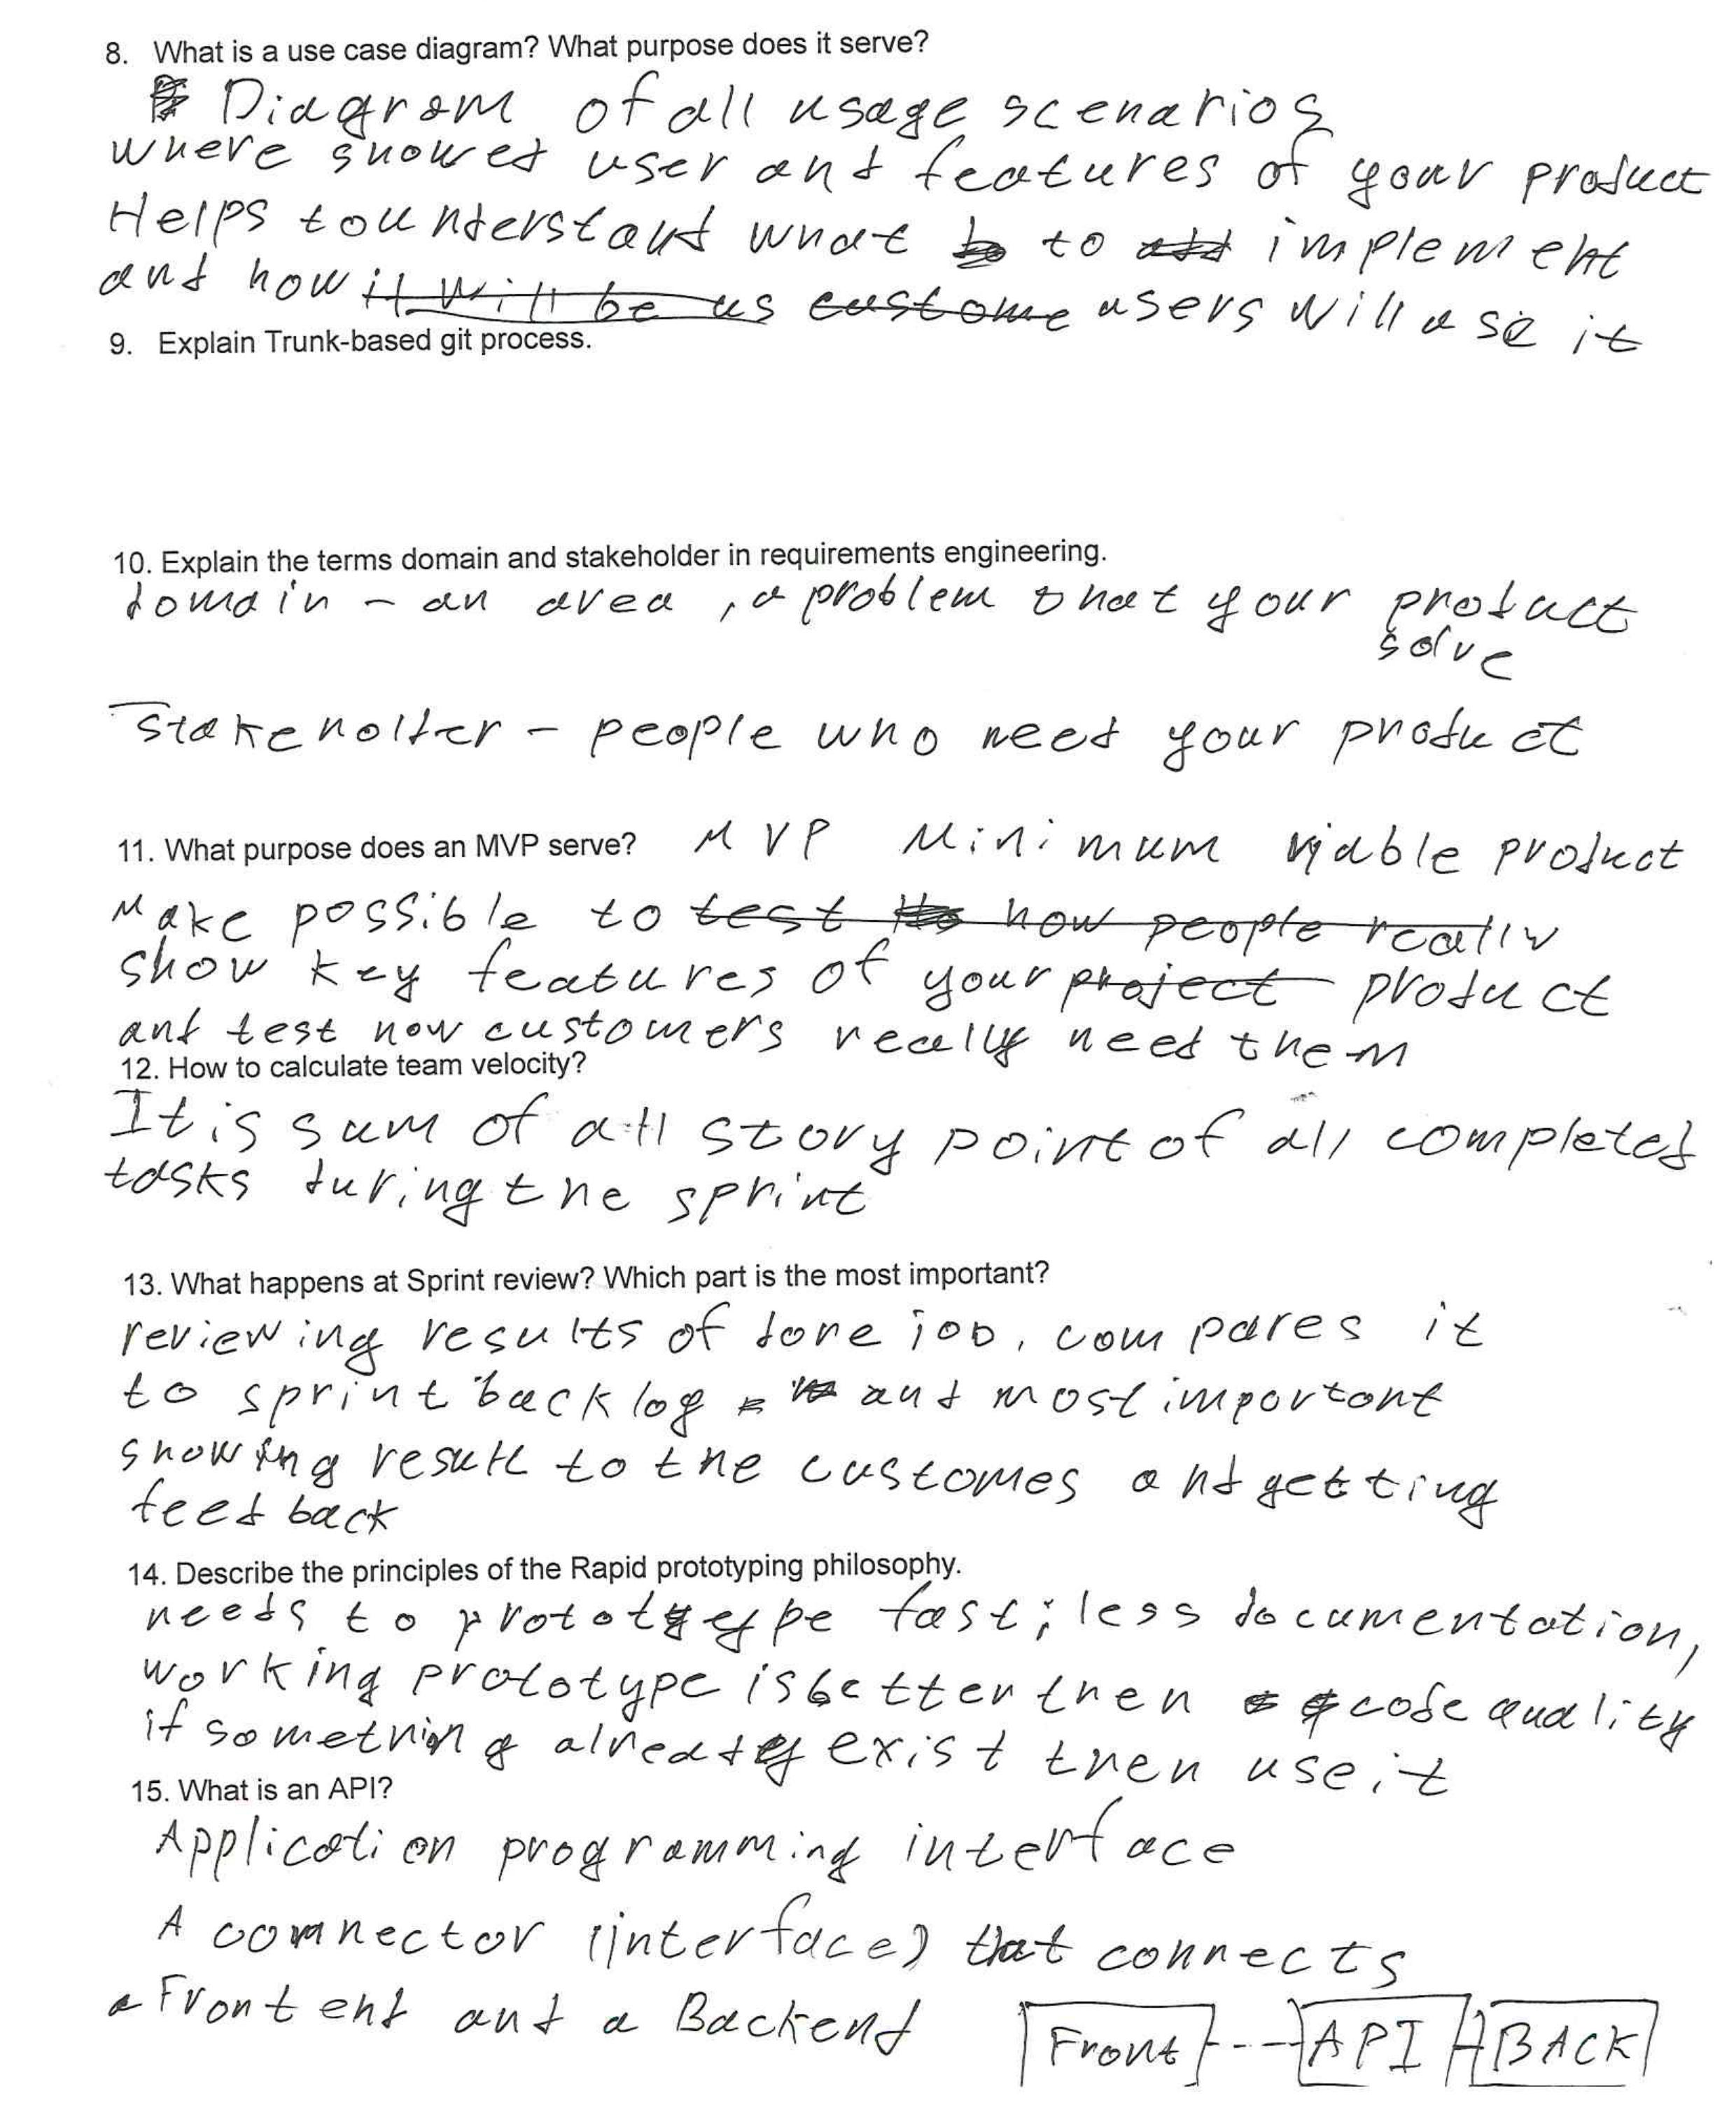 8. What is a use case diagram? What purpose does it serve?
Diagram of all usage scenarios
where showed user and features of your product
Helps to understand what to add implement
and how it will be us custome users will use it
9. Explain Trunk-based git process.
10. Explain the terms domain and stakeholder in requirements engineering.
domain - an area, a problem that your product
solve
Stakeholder - people who need your product
11. What purpose does an MVP serve? MVP Minimum viable product
Make possible to test how people really
show key features of your project product
and test how customers really need them
12. How to calculate team velocity?
It is sum of all story point of all completed
tasks during the sprint
13. What happens at Sprint review? Which part is the most important?
reviewing results of done job, compares it
to sprint backlog and most important
showing result to the customes and getting
feedback
14. Describe the principles of the Rapid prototyping philosophy.
needs to prototype fast; less documentation,
working prototype is better then code quality
if something already exist then use it
15. What is an API?
Application programming interface
A connector (interface) that connects
a Frontend and a Backend Front --- API BACK